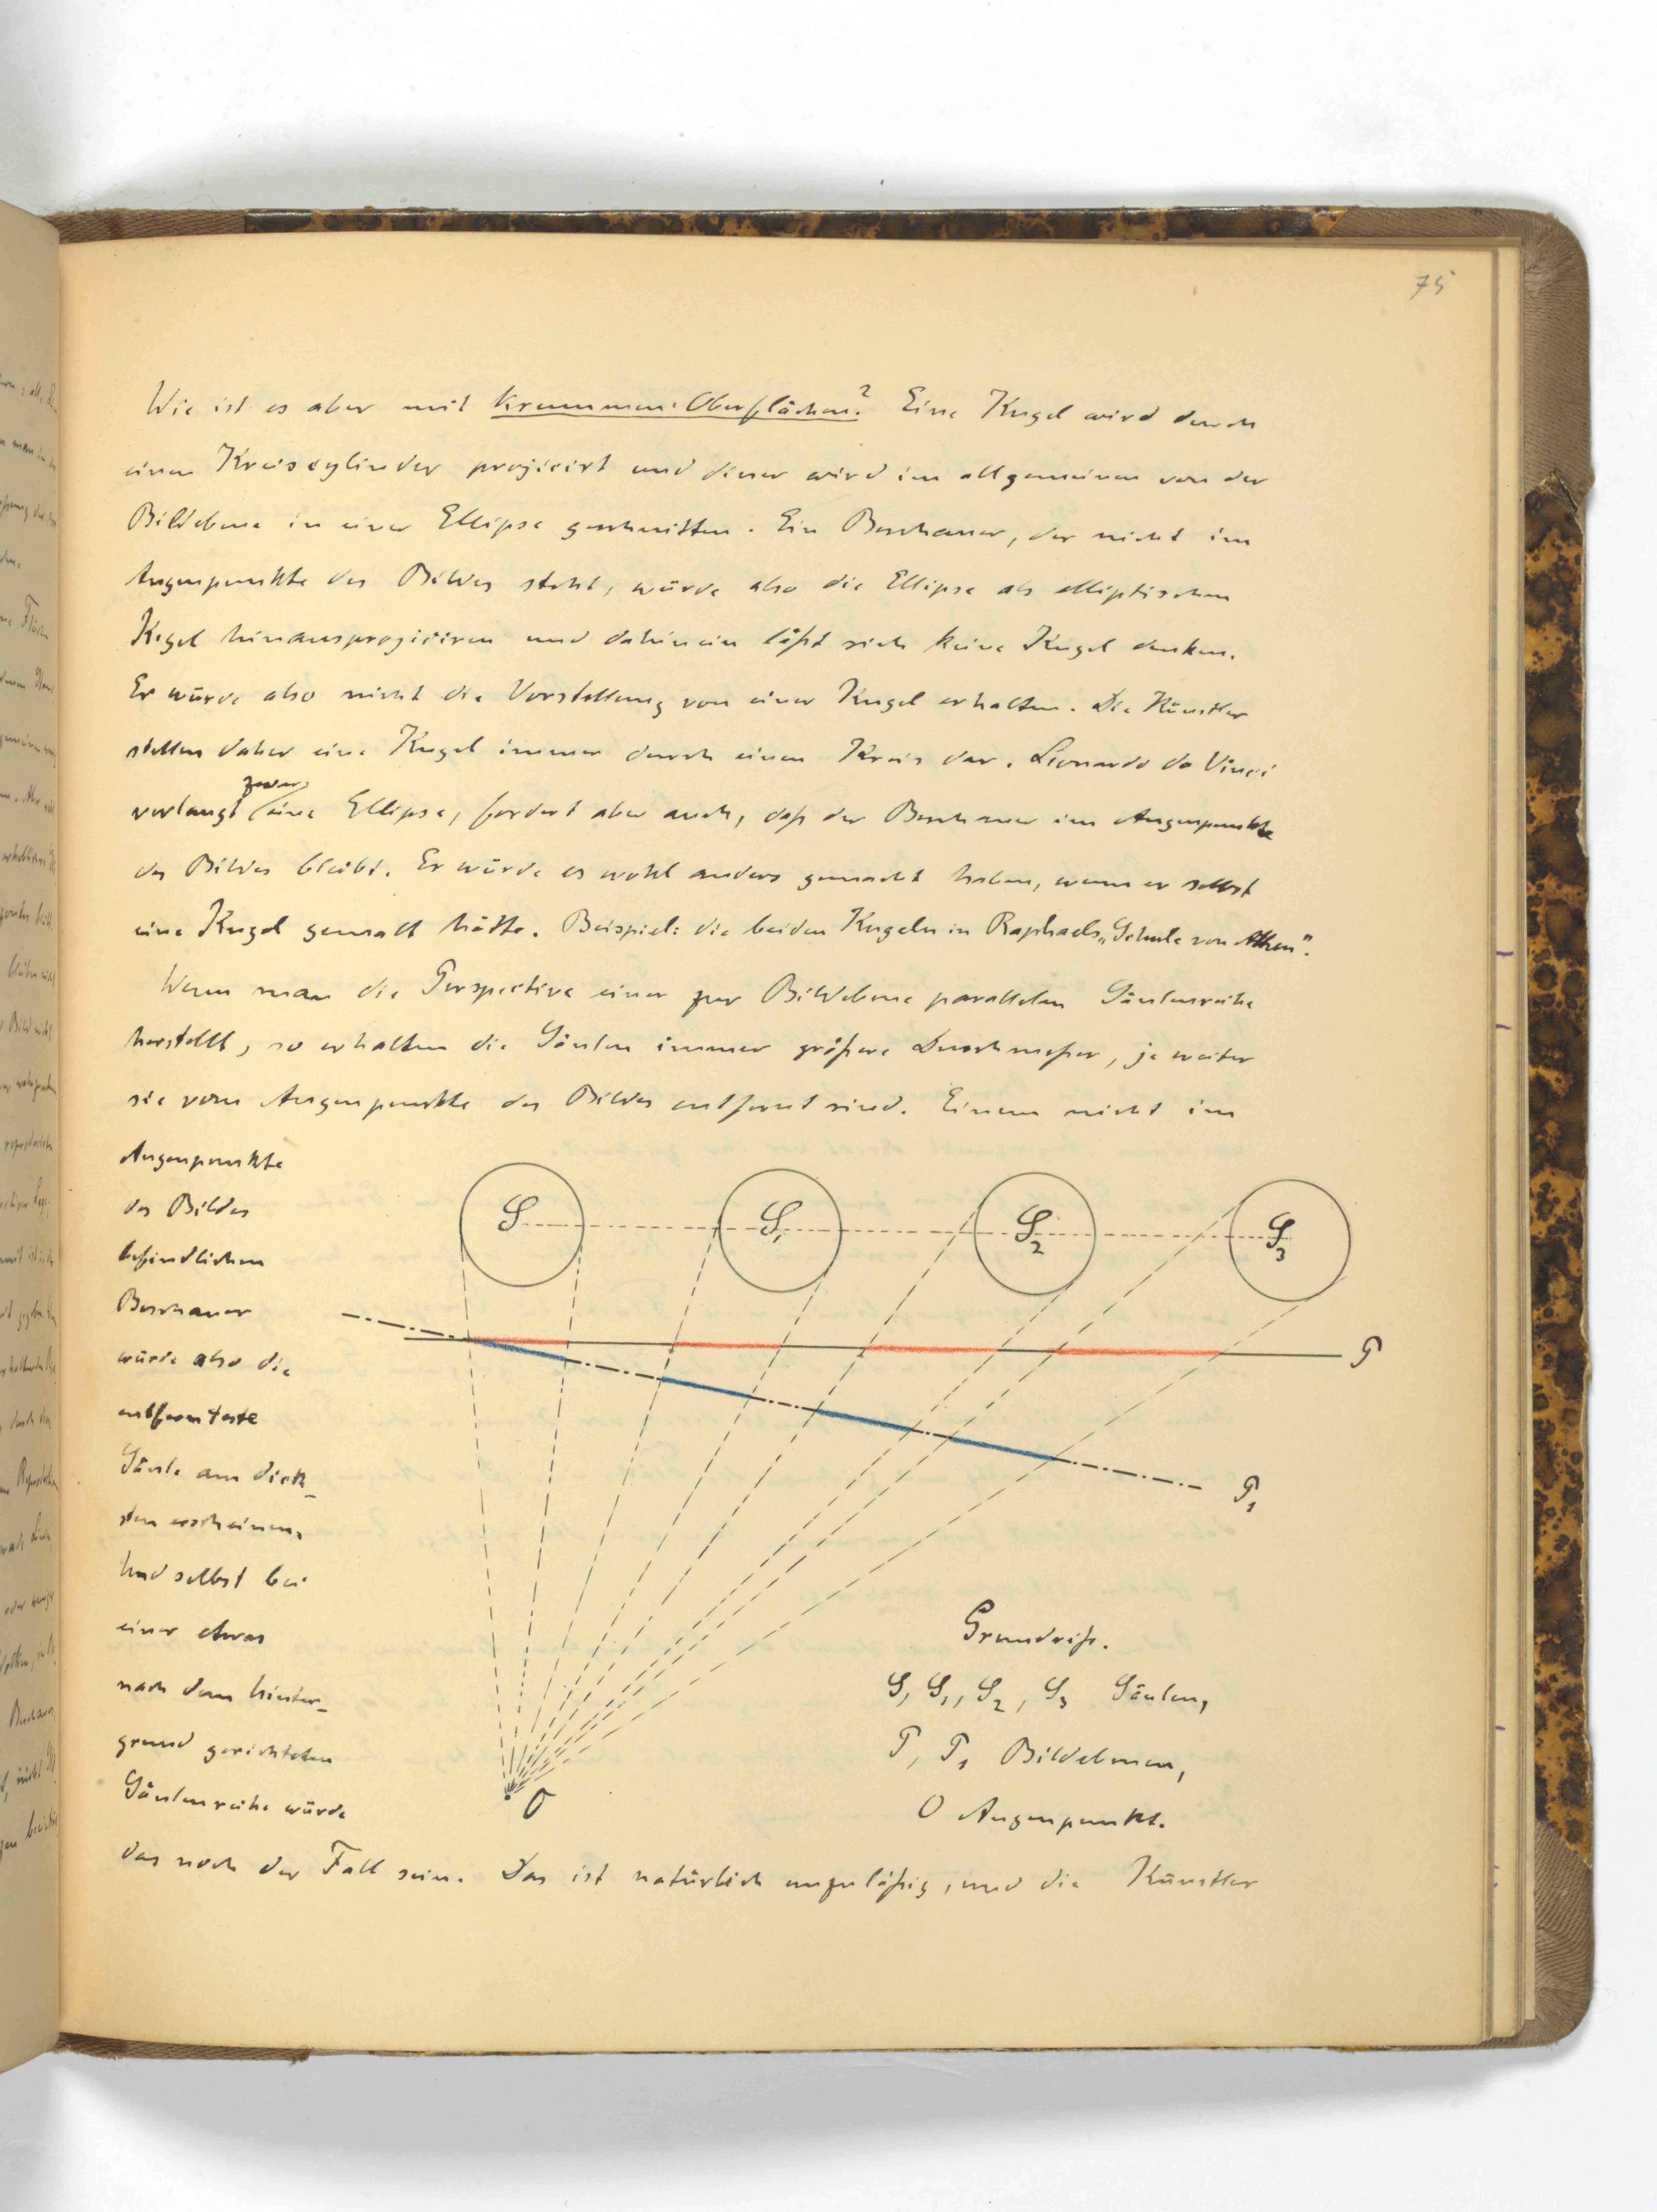 75
Wie ist es aber mit krummen Oberflächen? Eine Kugel wird durch
einen Kreiscylinder projicirt und dieser wird im allgemeinen von der
Bildebene in einer Ellipse geschnitten. Ein Beschauer, der nicht im
Augenpunkte des Bildes steht, würde also die Ellipse als elliptischen
Kegel hinausprojiciren und dahinein läßt sich keine Kugel denken.
Er würde also nicht die Vorstellung von einer Kugel erhalten. Die Künstler
stellen daher eine Kugel immer durch einen Kreis dar. Lionardo da Vinci
verlangt zwar eine Ellipse, fordert aber auch, daß der Beschauer im Augenpunkte
des Bildes bleibt. Er würde es wohl anders gemacht haben, wenn er selbst
eine Kugel gemalt hätte. Beispiel: die beiden Kugeln in Raphaels „Schule von Athen".
Wenn man die Perspective einer zur Bildebene parallelen Säulenreihe
herstellt, so erhalten die Säulen immer größere Durchmeßer, je weiter
sie vom Augenpunkte des Bildes entfernt sind. Einem nicht im
Augenpunkte
des Bildes
befindlichen
Beschauer
würde also die
entfernteste
Säule am dick-
sten erscheinen.
Und selbst bei
einer etwas
nach dem hinter-
grund gerichteten
Säulenreihe würde
das noch der Fall sein. Das ist natürlich unzuläßig, und die Künstler
S S1 S2 S3
P
P1
O
Grundriß.
S, S1, S2, S3 Säulen,
P, P1 Bildebenen,
O Augenpunkt.